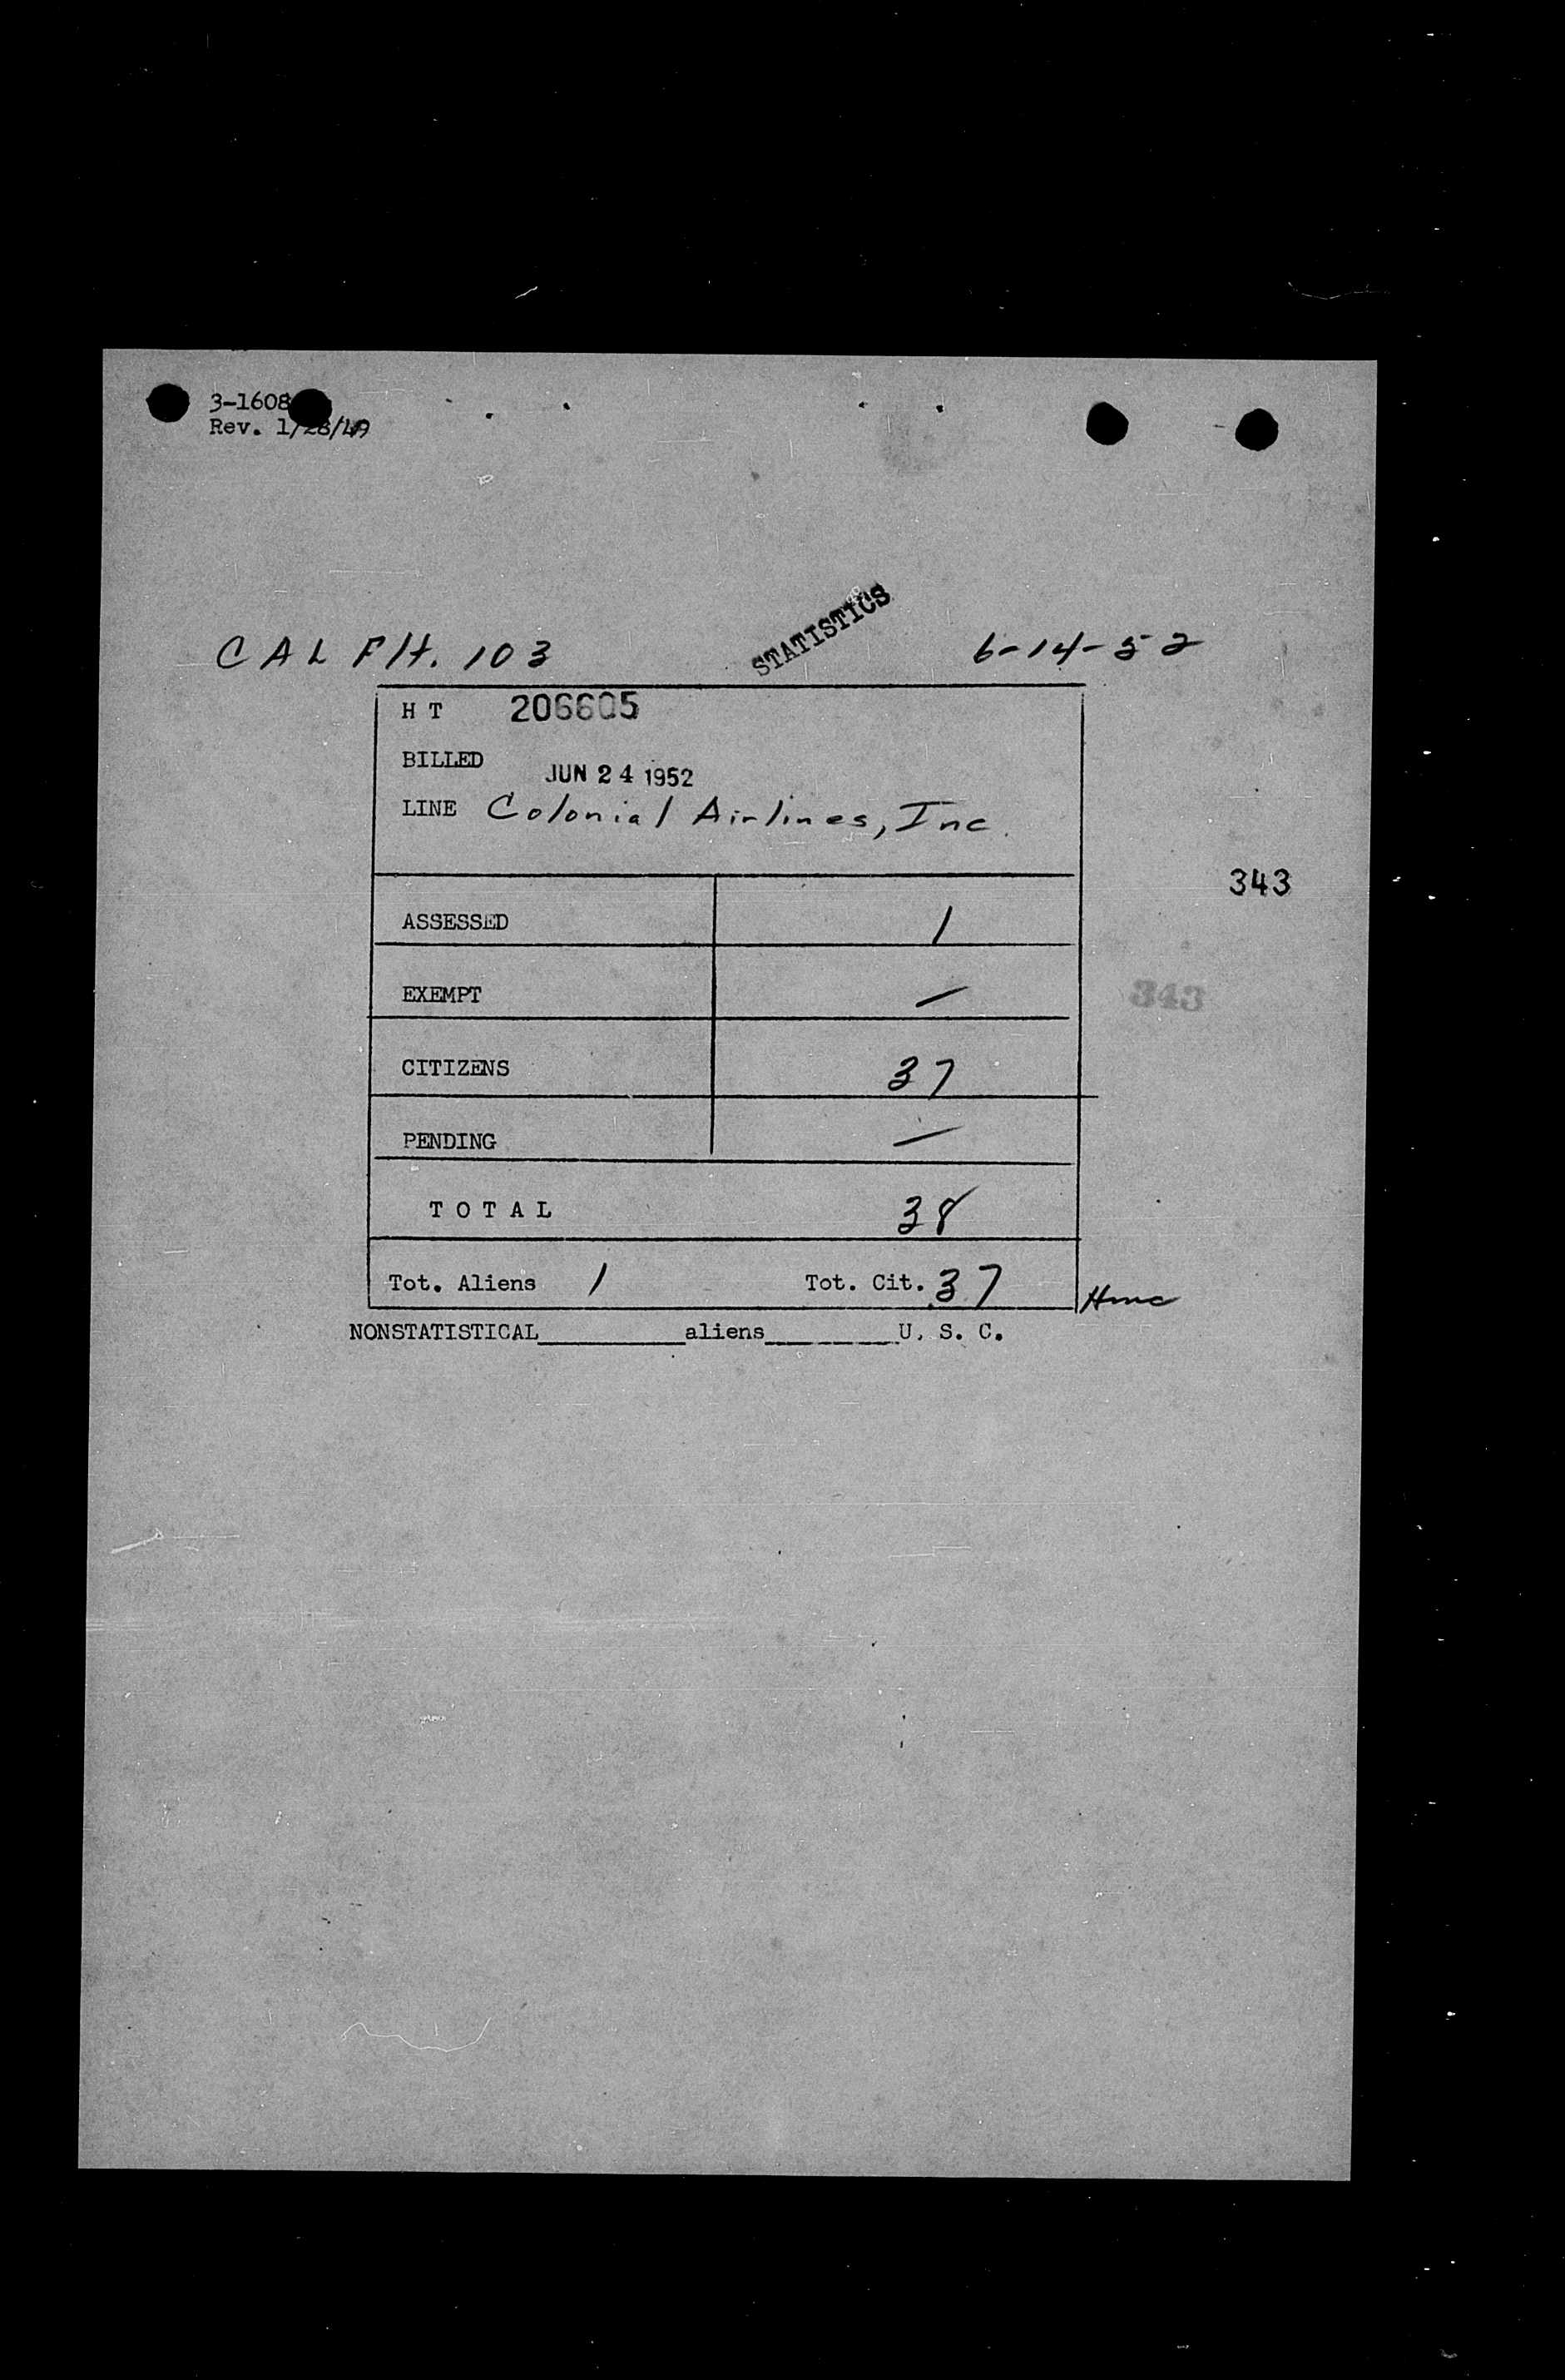 3-1608
Rev. 1/28/49
STATISTICS
CAL Flt. 103 6-14-52
H T 206605
BILLED JUN 24 1952
LINE Colonial Airlines, Inc.
343
ASSESSED 1
EXEMPT —
343
CITIZENS 37
PENDING —
T O T A L 38
Tot. Aliens 1 Tot. Cit. 37
NONSTATISTICAL__________aliens_________U. S. C.